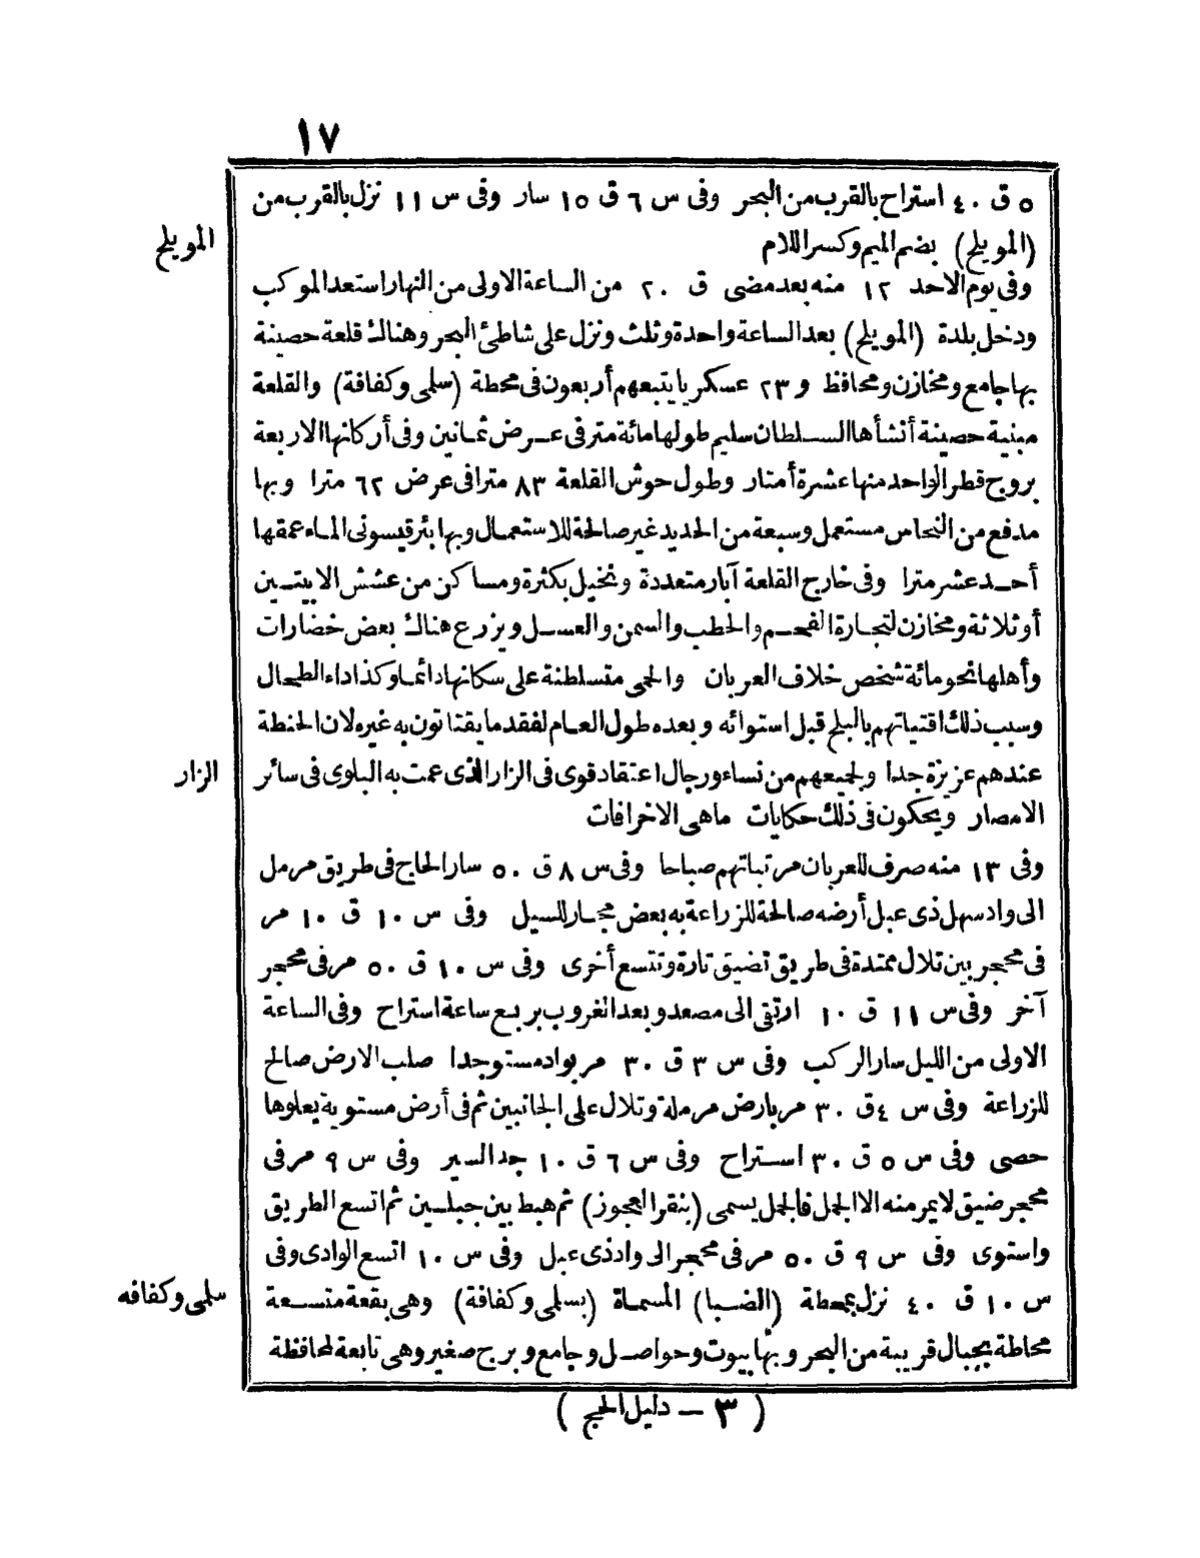 ١٧
٥ ق ٤٠ استراح بالقرب من البحر وفى س ٦ ق ١٥ سار وفى س ١١ نزل بالقرب من
(المويلح) بضم الميم وكسر اللام
المويلح
وفى يوم الاحد ١٢ منه بعد مضى ق ٢٠ من الساعة الاولى من النهار استعد الموكب
ودخل بلدة (المويلح) بعد الساعة واحدة وثلث ونزل على شاطئ البحر وهناك قلعة حصينة
بها جامع ومخازن ومحافظ و ٢٣ عسكريا يتبعهم أربعون فى محطة (سلمى وكفافة) والقلعة
مبنية حصينة أنشأها السلطان سليم طولها مائة متر فى عرض ثمانين وفى أركانها الاربعة
بروج قطر الواحد منها عشرة أمتار وطول حوش القلعة ٨٣ مترا فى عرض ٦٢ مترا وبها
مدفع من النحاس مستعمل وسبعة من الحديد غير صالحة للاستعمال وبها بئر قيسونى الماء عمقها
أحد عشر مترا وفى خارج القلعة آبار متعددة ونخيل بكثرة ومساكن من عشش الا بيتين
أو ثلاثة ومخازن لتجارة الفحم والحطب والسمن والعسل ويزرع هناك بعض خضارات
وأهلها نحو مائة شخص خلاف العربان والحمى متسلطنة على سكانها دائما وكذا داء الطحال
وسبب ذلك اقتياتهم بالبلح قبل استوائه وبعده طول العام لفقد ما يقتاتون به غيره لان الحنطة
عندهم عزيزة جدا ولجميعهم من نساء ورجال اعتقاد قوى فى الزار الذى عمت به البلوى فى سائر
الزار
الامصار ويحكون فى ذلك حكايات ما هى الا خرافات
وفى ١٣ منه صرف للعربان مرتباتهم صباحا وفى س ٨ ق ٥٠ سار الحاج فى طريق مرمل
الى واد سهل ذى عبل أرضه صالحة للزراعة به بعض مجار للسيل وفى س ١٠ ق ١٠ مر
فى محجر بين تلال ممتدة فى طريق تضيق تارة وتتسع أخرى وفى س ١٠ ق ٥٠ مر فى محجر
آخر وفى س ١١ ق ١٠ ارتقى الى مصعد وبعد الغروب بربع ساعة استراح وفى الساعة
الاولى من الليل سار الركب وفى س ٣ ق ٣٠ مر بواد مستو جدا صلب الارض صالح
للزراعة وفى س ٤ ق ٣٠ مر بارض مرملة وتلال على الجانبين ثم فى أرض مستوية يعلوها
حصى وفى س ٥ ق ٣٠ استراح وفى س ٦ ق ١٠ جد السير وفى س ٩ مر فى
محجر ضيق لا يمر منه الا الجمل فالجمل يسمى (بنقر العجوز) ثم هبط بين جبلين ثم اتسع الطريق
واستوى وفى س ٩ ق ٥٠ مر فى محجر الى واد ذى عبل وفى س ١٠ اتسع الوادى وفى
س ١٠ ق ٤٠ نزل بمحطة (الضبا) المسماة (بسلمى وكفافة) وهى بقعة متسعة
سلمى وكفافه
محاطة بجبال قريبة من البحر وبها بيوت وحواصل وجامع وبرج صغير وهى تابعة لمحافظة
(٣ ــ دليل الحج)